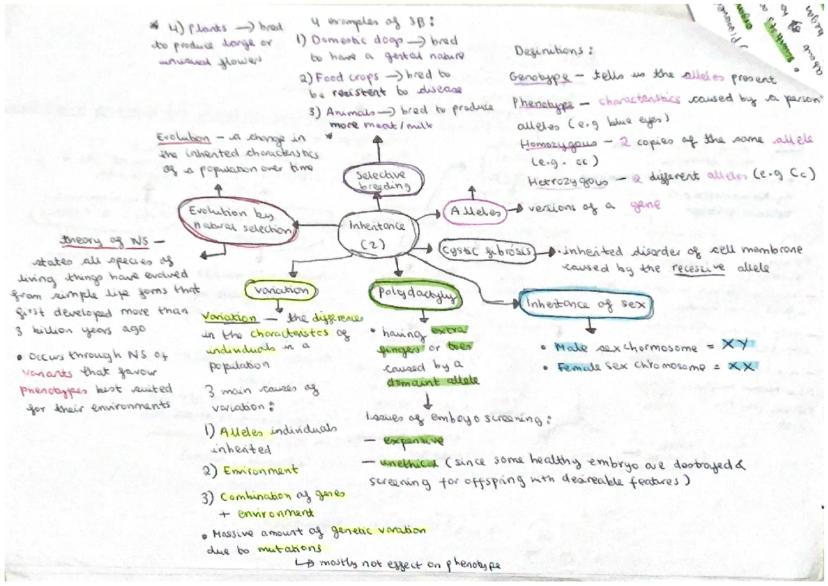 * 4) Plants → bred
to produce large or
unusual flowers
4 examples of SB:
1) Domestic dogs → bred
to have a gental nature
2) Food crops → bred to
be resistent to disease
3) Animals → bred to produce
more meat/milk *
Definitions:
Genotype – tells us the alleles present
Phenotype – characteristics caused by a person
alleles (e.g blue eyes)
Homozygous – 2 copies of the same allele
(e.g. cc)
Hetrozygous – 2 different alleles (e.g Cc)
Evolution – a change in
the inherited characteristics
of a population over time
Selective
breeding
Evolution by
natural selection
Inheritance
(2)
Alleles → versions of a gene
Cystic fibrosis → • inherited disorder of cell membrane
caused by the recessive allele
Theory of NS –
states all species of
living things have evolved
from simple life forms that
first developed more than
3 billion years ago
• occurs through NS of
variants that favour
phenotypes best suited
for their environments
Variation
Variation – the difference
in the characteristcs of
individuals in a
population
3 main causes of
variation:
1) Alleles individuals
inherited
2) Environment
3) Combination of genes
+ environment
• Massive amount of genetic variation
due to mutations
↳ mostly not effect on phenotype
Polydactyly
• having extra
fingers or toes
caused by a
domaint allele
Issues of embryo screening:
– expensive
– unethical (since some healthy embryo are destroyed &
screening for offspring with desireable features)
Inheritance of sex
• Male sex chormosome = XY
• Female sex chromosome = XX